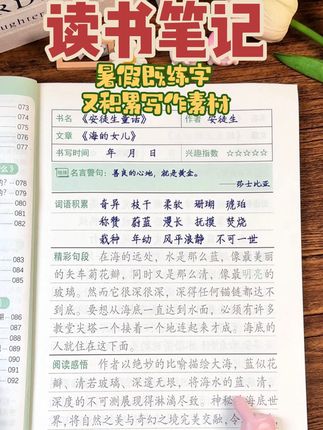 读书笔记
暑假既练字
又积累写作素材
书名 《安徒生童话》 作者 安徒生
文章 《海的女儿》
书写时间 年 月 日 兴趣指数 ☆☆☆☆☆
名言警句: 善良的心地,就是黄金。
——莎士比亚
词语积累 奇异 枝干 柔软 珊瑚 琥珀
称赞 蔚蓝 漫长 抚摸 焚烧
栽种 年幼 风平浪静 不可一世
精彩句段 在海的远处,水是那么蓝,像最美丽
的矢车菊花瓣,同时又是那么清,像最明亮的
玻璃。然而它很深很深,深得任何锚链都达不
到底。要想从海底一直达到水面,必须有许多
教堂尖塔一个接着一个地连起来才成。海底的
人就住在这下面。
阅读感悟 作者以绝妙的比喻描绘大海,蓝似花
瓣、清若玻璃、深邃无垠,将海水的蓝、清、
深度的不可测展现得淋漓尽致。神秘
海底世
界,将自然之美与奇幻之境完美交融,令
073
074
075
076
078
079
080
081
082
083
084
085
087
088
089
090
091
092